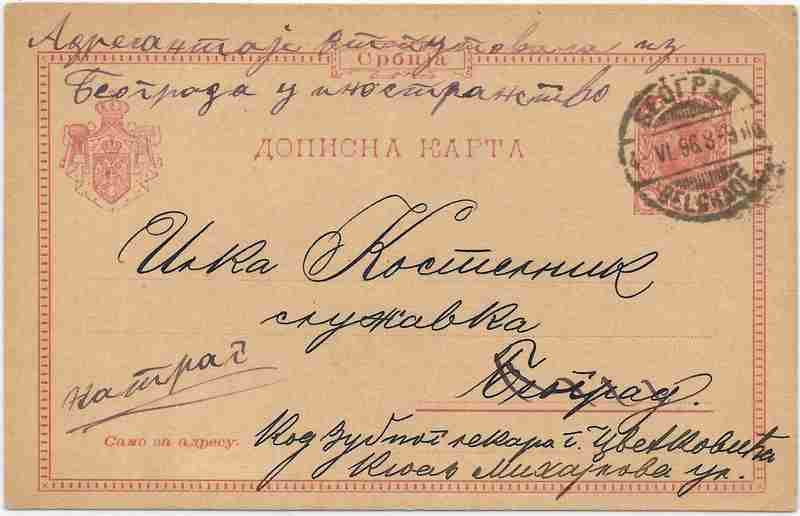 Адресанткја отпутовала из
Србија
Београда у иностранство
БЕОГРАД
VI. 96. 8-9
BELGRADE
ДОПИСНА КАРТА
Илка Костелник
служавка
натраг
Београд.
Само за адресу.
Код Зубног лекара г. Цветковића
Кнез Михајлова ул.